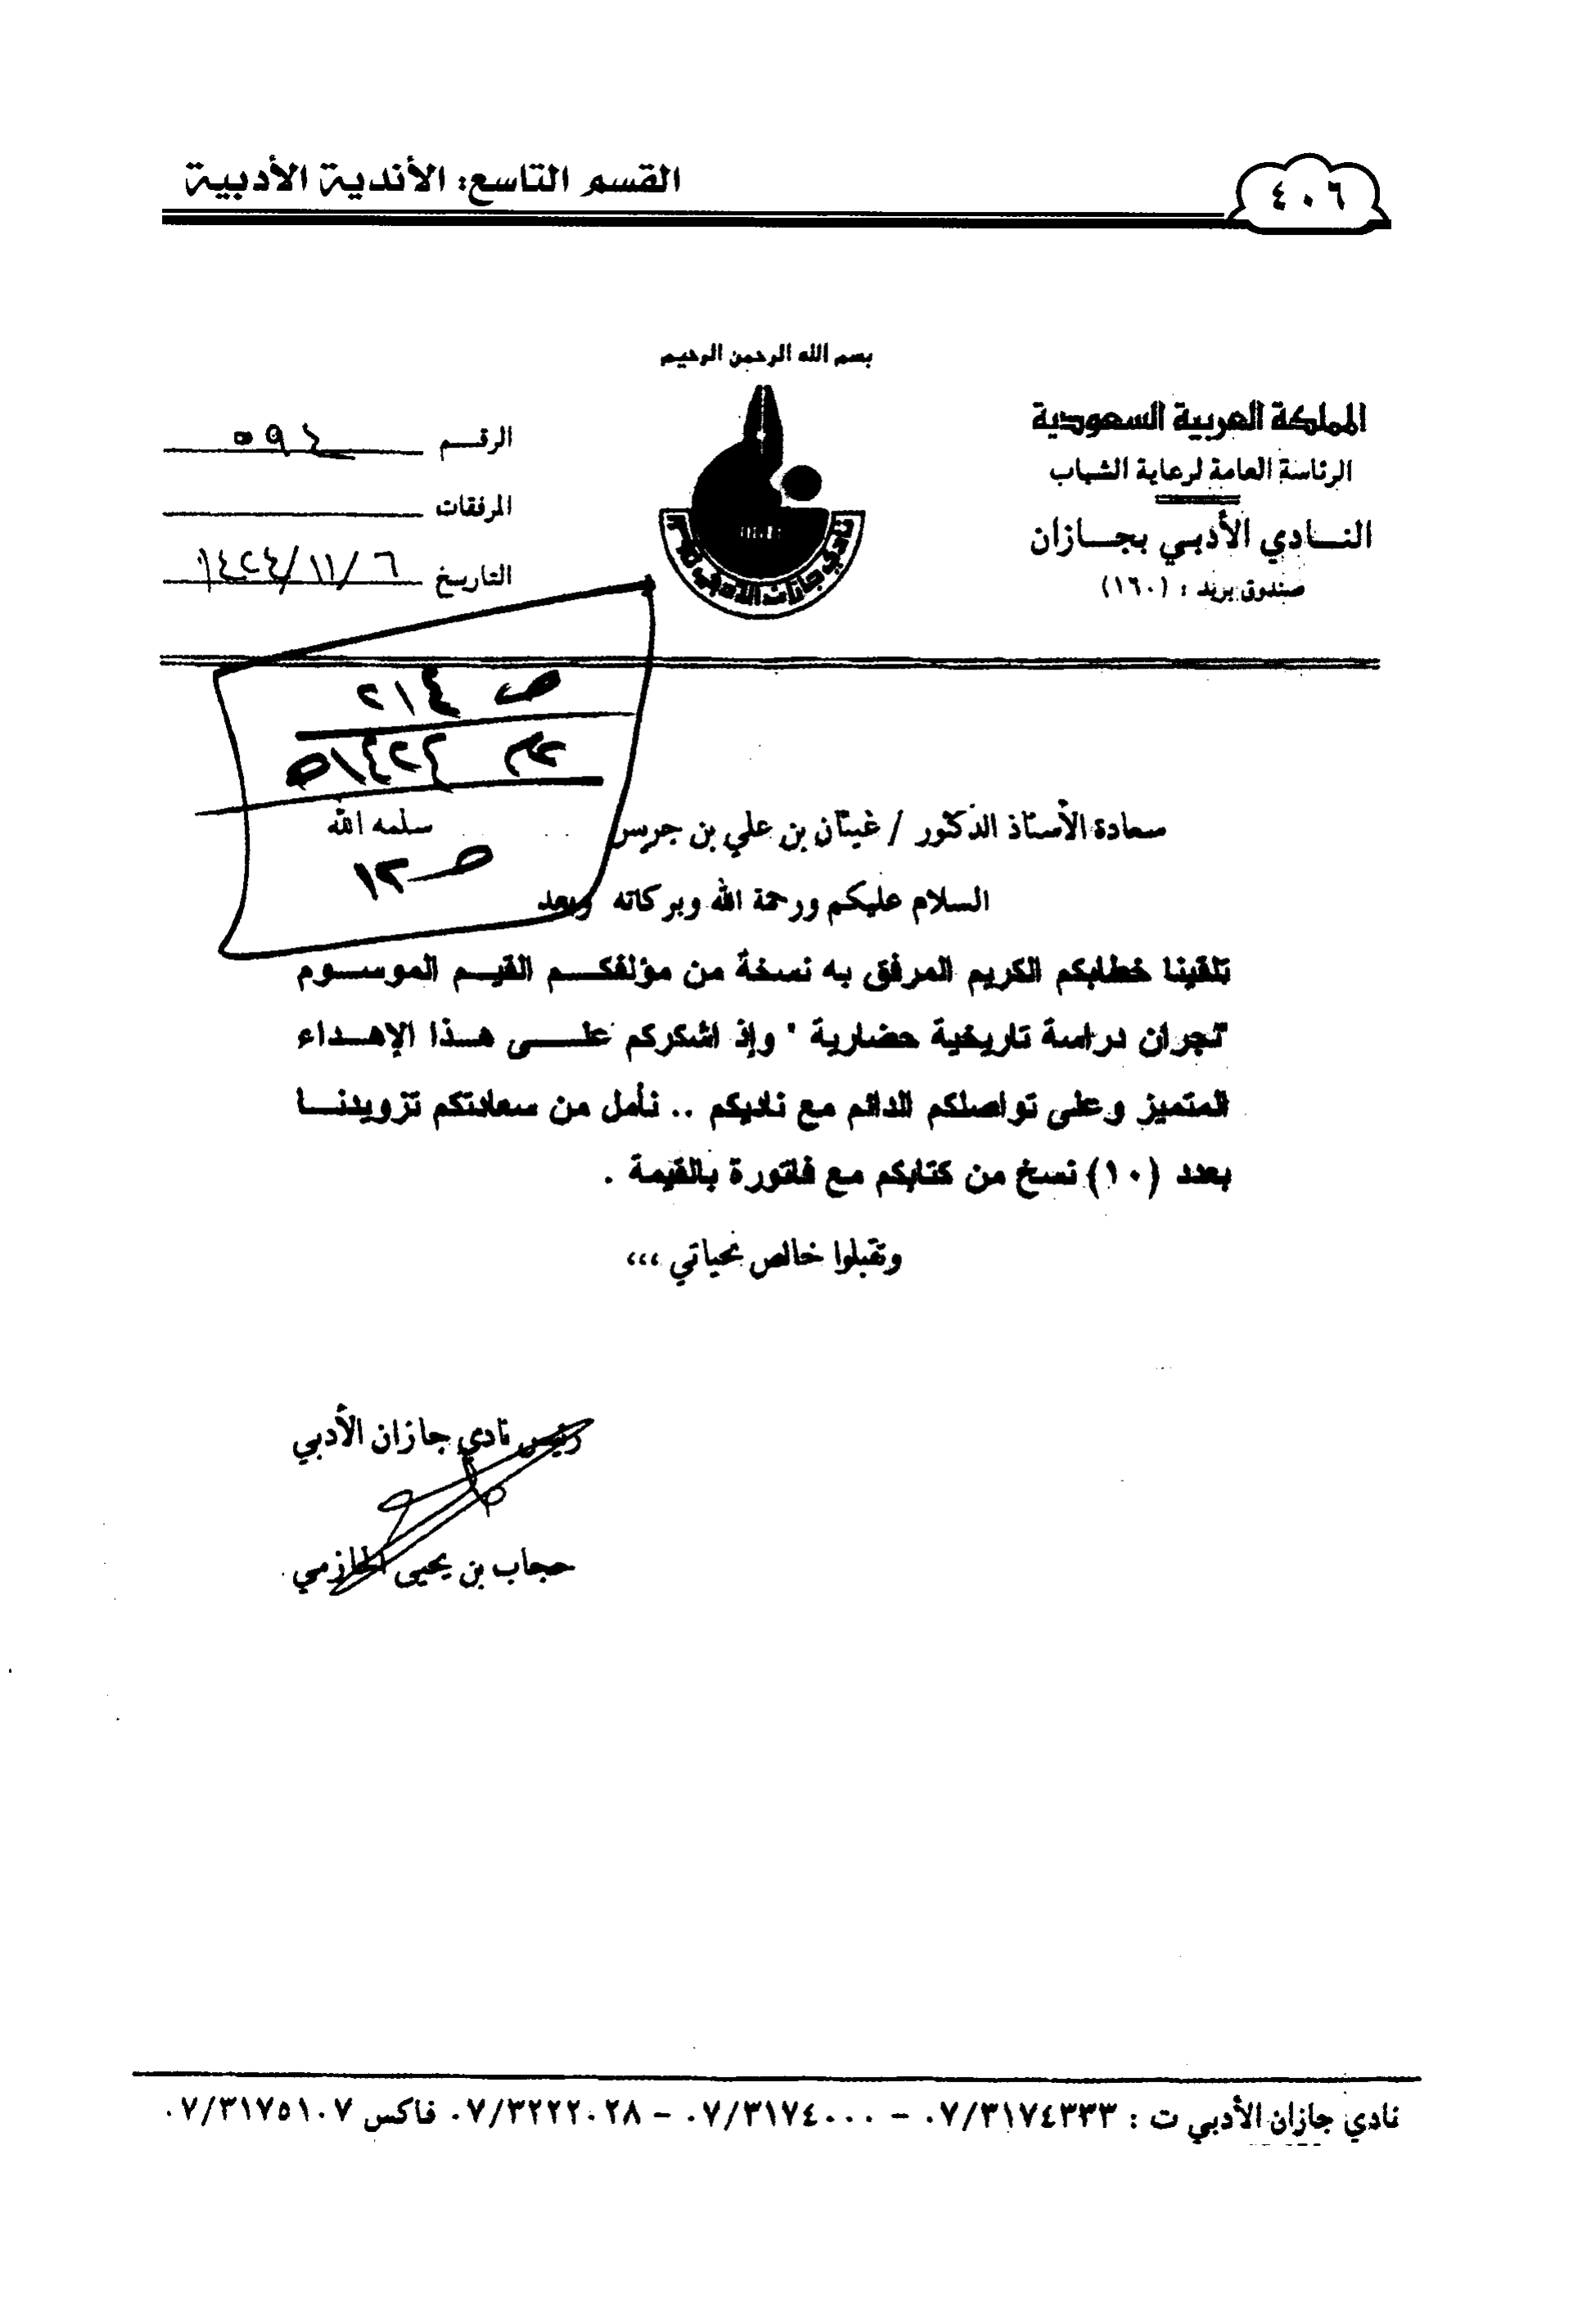 ٤٠٦
القسم التاسع: الأندية الأدبية
بسم الله الرحمن الرحيم
المملكة العربية السعودية
الرئاسة العامة لرعاية الشباب
النـــادي الأدبـي بجـــازان
صندوق بريد : (١٦٠)
نادي جازان الأدبي
الرقـــم ٥٩٤
المرفقات
التاريخ ٦/١١/١٤٢٤
ص ٢١٤
١٤٢٤
سعادة الأستاذ الدكتور / غيثان بن علي بن جريس سلمه الله
ص ١٢
السلام عليكم ورحمة الله وبركاته وبعد
تلقينا خطابكم الكريم المرفق به نسخة من مؤلفكـــم القيـــم الموســـوم
"نجران دراسة تاريخية حضارية " وإذ اشكركم علـــى هـــذا الإهـــداء
المتميز وعلى تواصلكم الدائم مع ناديكم .. نأمل من سعادتكم تزويدنـــا
بعدد (١٠) نسخ من كتابكم مع فاتورة بالقيمة .
وتقبلوا خالص تحياتي ،،،
رئيس نادي جازان الأدبي
حجاب بن يحيى الحازمي
نادي جازان الأدبي ت : ٠٧/٣١٧٤٣٣٣ – ٠٧/٣١٧٤٠٠٠ – ٠٧/٣٢٢٢٠٢٨ فاكس ٠٧/٣١٧٥١٠٧